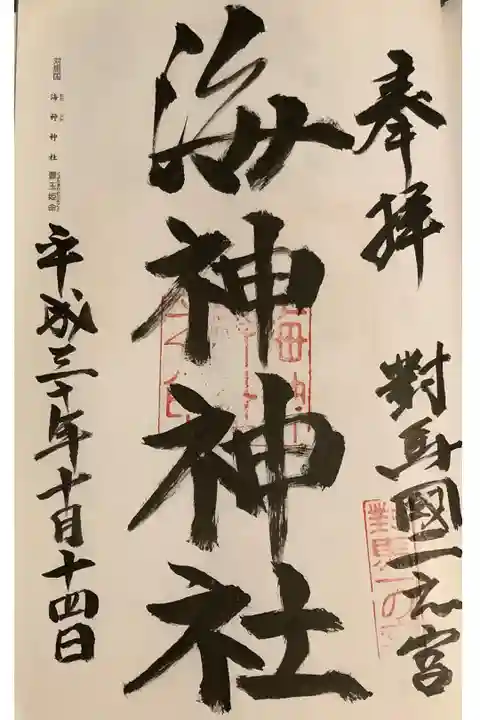 奉拝
對馬國一之宮
海神神社
平成三十年十月十四日
対馬国 海神神社 豊玉姫命